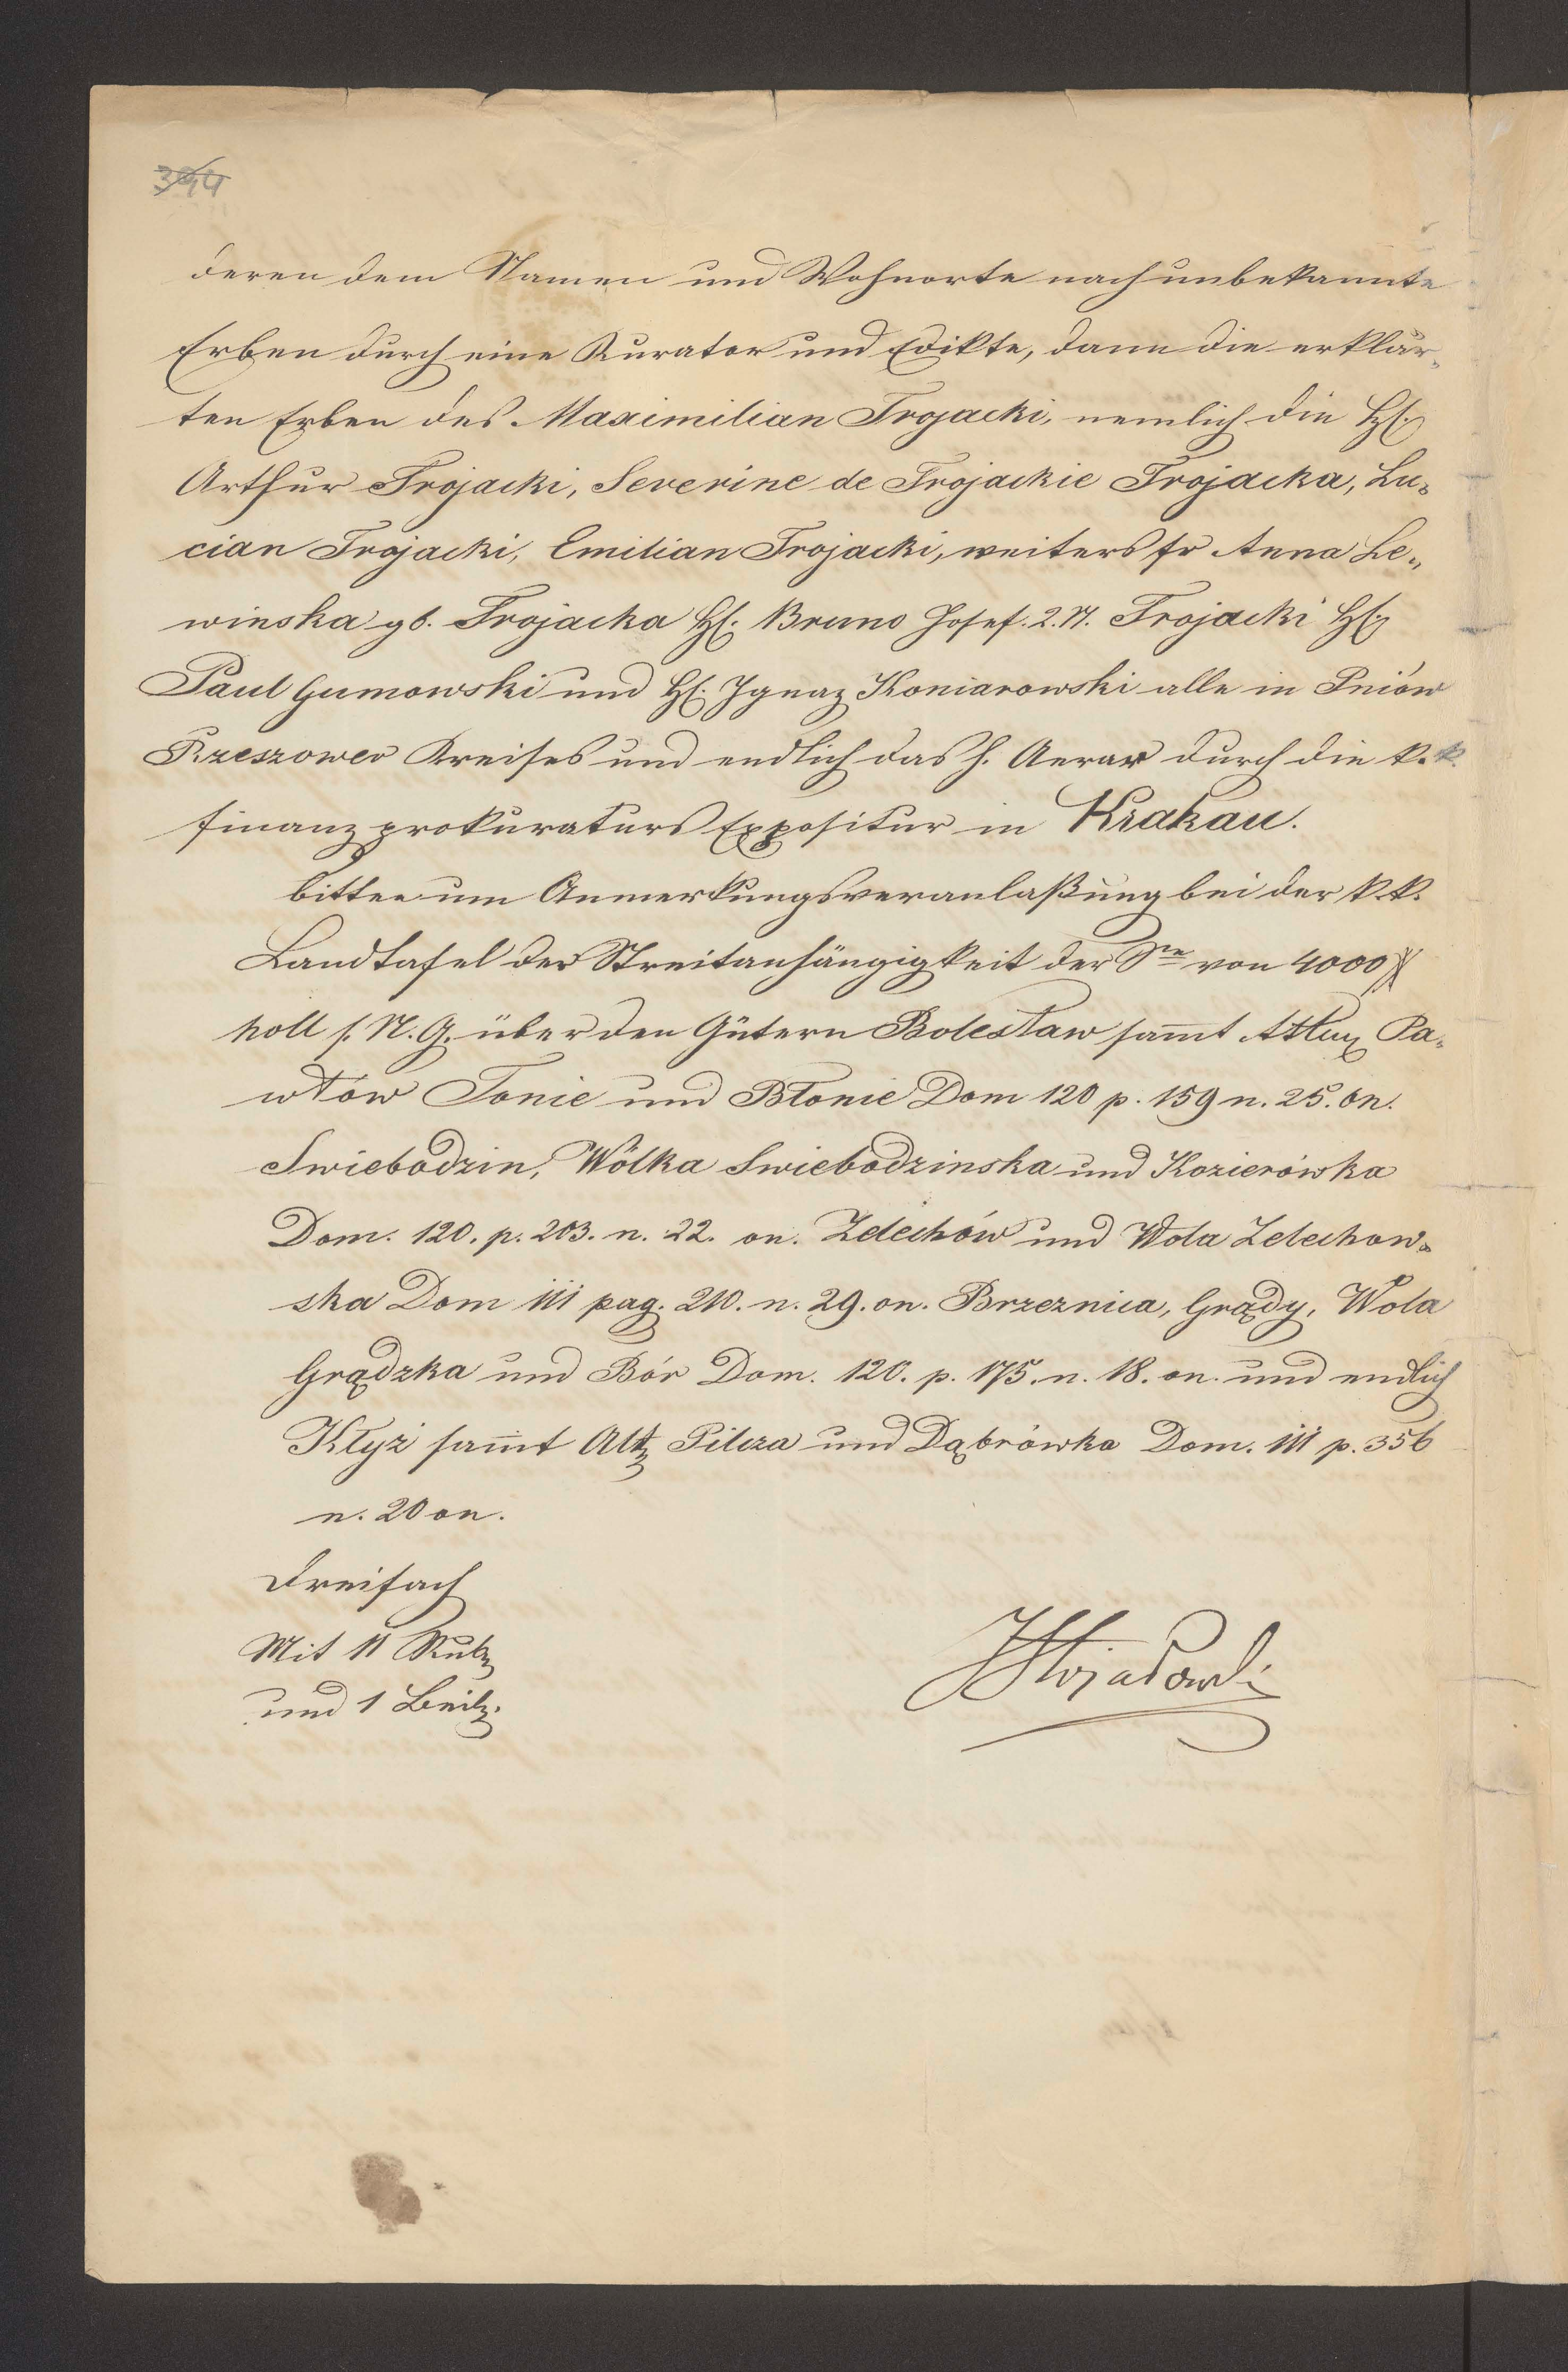 394
deren dem Namen und Wohnorte nach unbekannte
Erben durch eine Kurator und Edikte, dann die erklär„
ten Erben des Maximilian Trojacki, nemlich die HH.
Arthur Trojacki, Severine de Trojackie Trojacka, Lu„
cian Trojacki, Emilian Trojacki, weiters fr Anna Le„
winska gb. Trojacka H. Bruno Josef. 2. N. Trojacki H.
Paul Gumowski und H. Ignaz Koniarowski alle in Pniów
Rzeszower Kreises und endlich das h. Aerar durch die k. k.
Finanzprokuraturs Expositur in Krakau.
bitten um Anmerkungsveranlaßung bei der k. k.
Landtafel der Streitanhängigkeit der von 4000 #
holl s. N. G. über den Gütern Bolesław samt Pa„
włów Tonie und Błonie Dom 120 p. 159 n. 25. on.
Swiebodzin, Wólka Swiebodzinska und Kozierówka
Dom. 120. p. 203. n. 22. on. Zelechów und Wola Zelechow„
ska Dom 111 pag. 210. n. 29. on. Brzeznica, Grądy, Wola
Grądzka und Bór Dom. 120. p. 175. n. 18. on. und endlich
Kłyż samt Att. Pilcza und Dąbrówka Dom. 111 p. 356
n. 20 on.
Dreifach
Mit 11 Rub.
und 1 Beil.